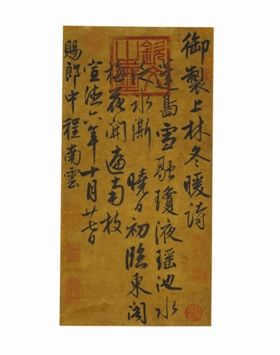 御製上林冬暖詩
蓬島雪融瓊液瑶池水
冰澌曉日初臨東閣
梅花開遍南枝
宣德六年十月廿日
賜郎中程南雲